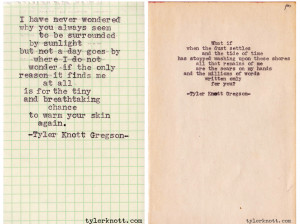 I have never wondered
why you always seem
to be surrounded
by sunlight
but not a day goes by
where I do not
wonder if the only
reason it finds me
at all
is for the tiny
and breathtaking
chance
to warm your skin
again.
-Tyler Knott Gregson-
tylerknott.com
What if
when the dust settles
and the tide of time
has stopped washing upon these shores
all that remains of me
are the scars on my hands
and the millions of words
written only
for you?
-Tyler Knott Gregson-
tylerknott.com